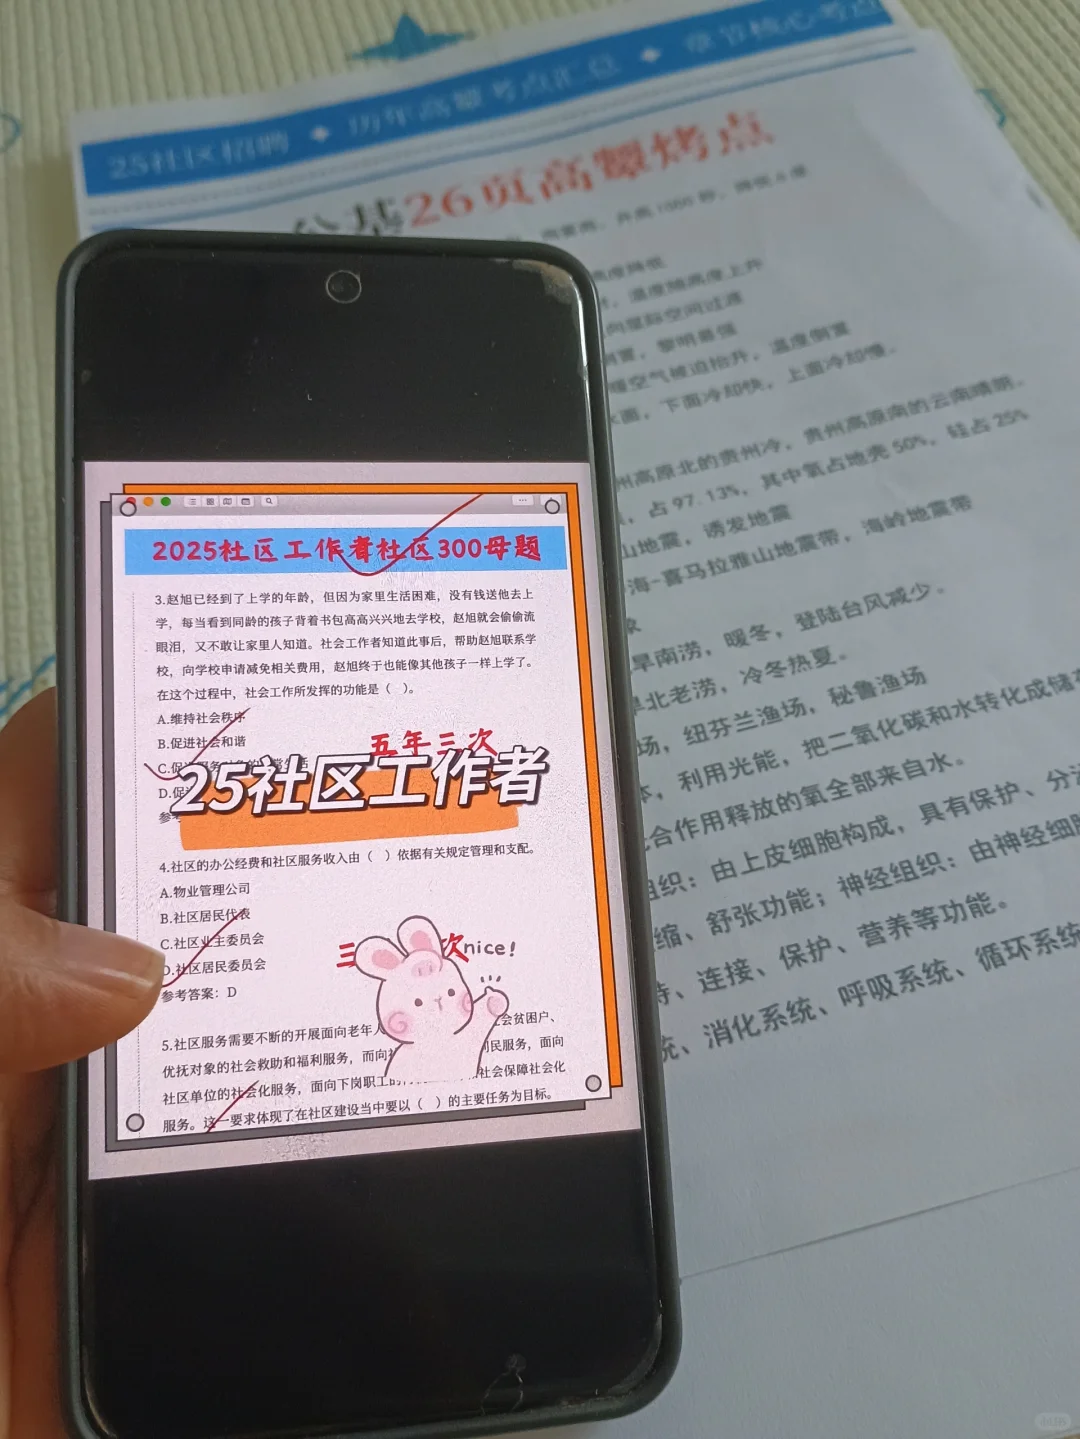 25社区招聘 ✦ 历年高颦考点汇总 ✦ 章节核心考点
公基26页高颦烤点
高度降低
温度随高度上升
向星际空间过渡
黎明最强
暖空气被迫抬升，温度倒置
水面，下面冷却快，上面冷却慢。
州高原北的贵州冷，贵州高原南的云南晴朗。
占 97.13%，其中氧占地壳 50%，硅占 25%
山地震，诱发地震
海-喜马拉雅山地震带，海岭地震带
象
旱南涝，暖冬，登陆台风减少。
旱北老涝，冷冬热夏。
场，纽芬兰渔场，秘鲁渔场
体，利用光能，把二氧化碳和水转化成储存
光合作用释放的氧全部来自水。
组织：由上皮细胞构成，具有保护、分泌
缩、舒张功能；神经组织：由神经细胞
持、连接、保护、营养等功能。
统、消化系统、呼吸系统、循环系统
2025社区工作者社区300母题
3.赵旭已经到了上学的年龄，但因为家里生活困难，没有钱送他去上
学，每当看到同龄的孩子背着书包高高兴兴地去学校，赵旭就会偷偷流
眼泪，又不敢让家里人知道。社会工作者知道此事后，帮助赵旭联系学
校，向学校申请减免相关费用，赵旭终于也能像其他孩子一样上学了。
在这个过程中，社会工作所发挥的功能是（ ）。
A.维持社会秩序
B.促进社会和谐
五年三次
C.促进服务对象的正常生活
25社区工作者
D.促
参考
4.社区的办公经费和社区服务收入由（ ）依据有关规定管理和支配。
A.物业管理公司
B.社区居民代表
C.社区业主委员会
三 次 nice!
D.社区居民委员会
参考答案：D
5.社区服务需要不断的开展面向老年人 会贫困户、
优抚对象的社会救助和福利服务，而向社 民服务，面向
社区单位的社会化服务，面向下岗职工的 社会保障社会化
服务。这一要求体现了在社区建设当中要以（ ）的主要任务为目标。